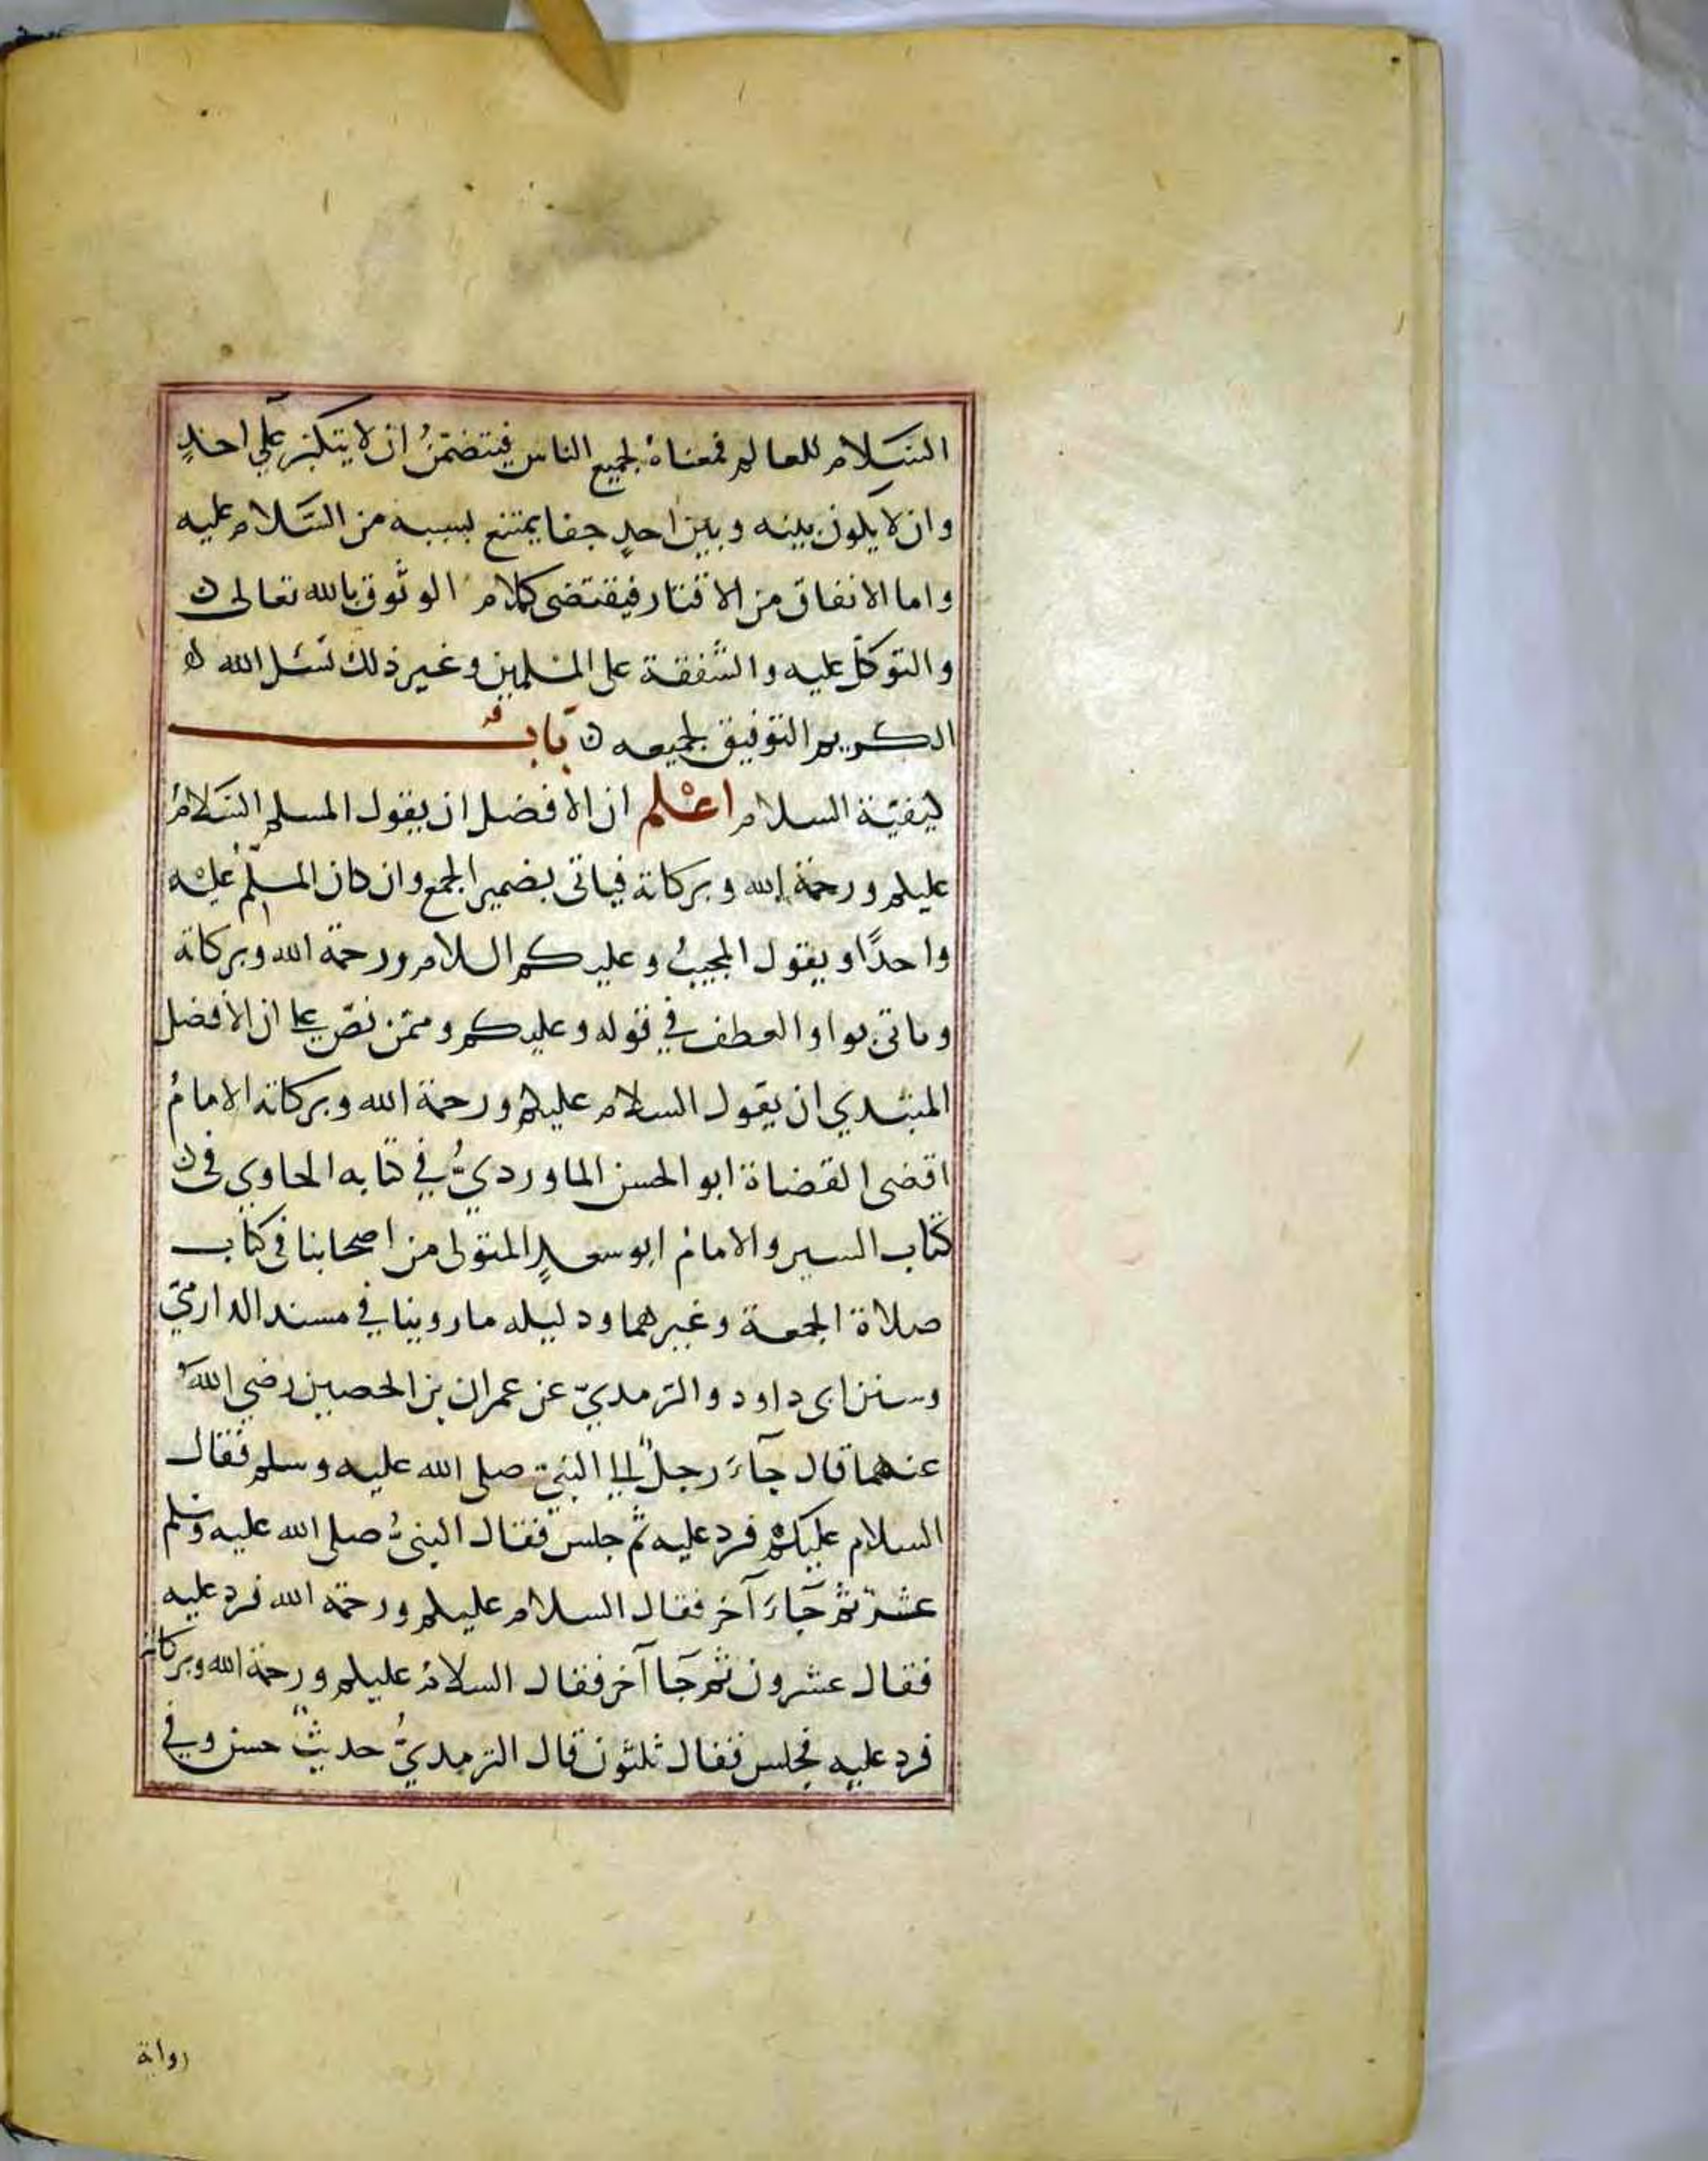 السَّلام للعالم فمعناهُ لجميع الناس فيتضمّنُ ان لا يتكبّر على احدٍ
وان لا يكون بينه وبين احدٍ جفا يمتنع بسببه من السَّلام عليه
واما الانفاق من الاقتار فيقتضى كلام الوثوق بالله تعالى ن
والتوكّل عليه والشّفقة على المسلمين وغير ذلك نسئل الله ن
الكريم التوفيق لجميعه ن بابُ
كيفيّة السلام اعْلم ان الافضل ان يقول المسلم السَّلامُ
عليكم ورحمة الله وبركاته فياتى بضمير الجمع وان كان المسلّم عليْه
واحدًا ويقول المجيبُ وعليكم السلام ورحمة الله وبركاته
وياتى بواو العطف في قوله وعليكم وممّن نصّ على ان الأفضل
المبتدي ان يقول السلام عليكم ورحمة الله وبركاته الامامُ
اقضى القضاة ابو الحسن الماورديُّ في كتابه الحاوي فى ن
كتاب السير والامامُ ابو سعدٍ المتولى من اصحابنا فى كتاب
صلاة الجمعة وغيرهما ودليله ما روينا في مسند الدارميّ
وسنن ابى داود والترمديّ عن عمران بن الحصين رضي الله
عنهما قال جآءَ رجلٌ الى النبيّ صلى الله عليه وسلم فقال
السلام عليكم فرد عليه ثم جلس فقال النبىُّ صلى الله عليه وسلم
عشرٌ ثم جآءَ آخر فقال السلام عليكم ورحمة الله فرد عليه
فقال عشرون ثم جآ آخر فقال السلامُ عليكم ورحمة الله وبركاته
فرد عليه فجلس فقال ثلثون قال الترمديُّ حديثٌ حسن وفي
رواية